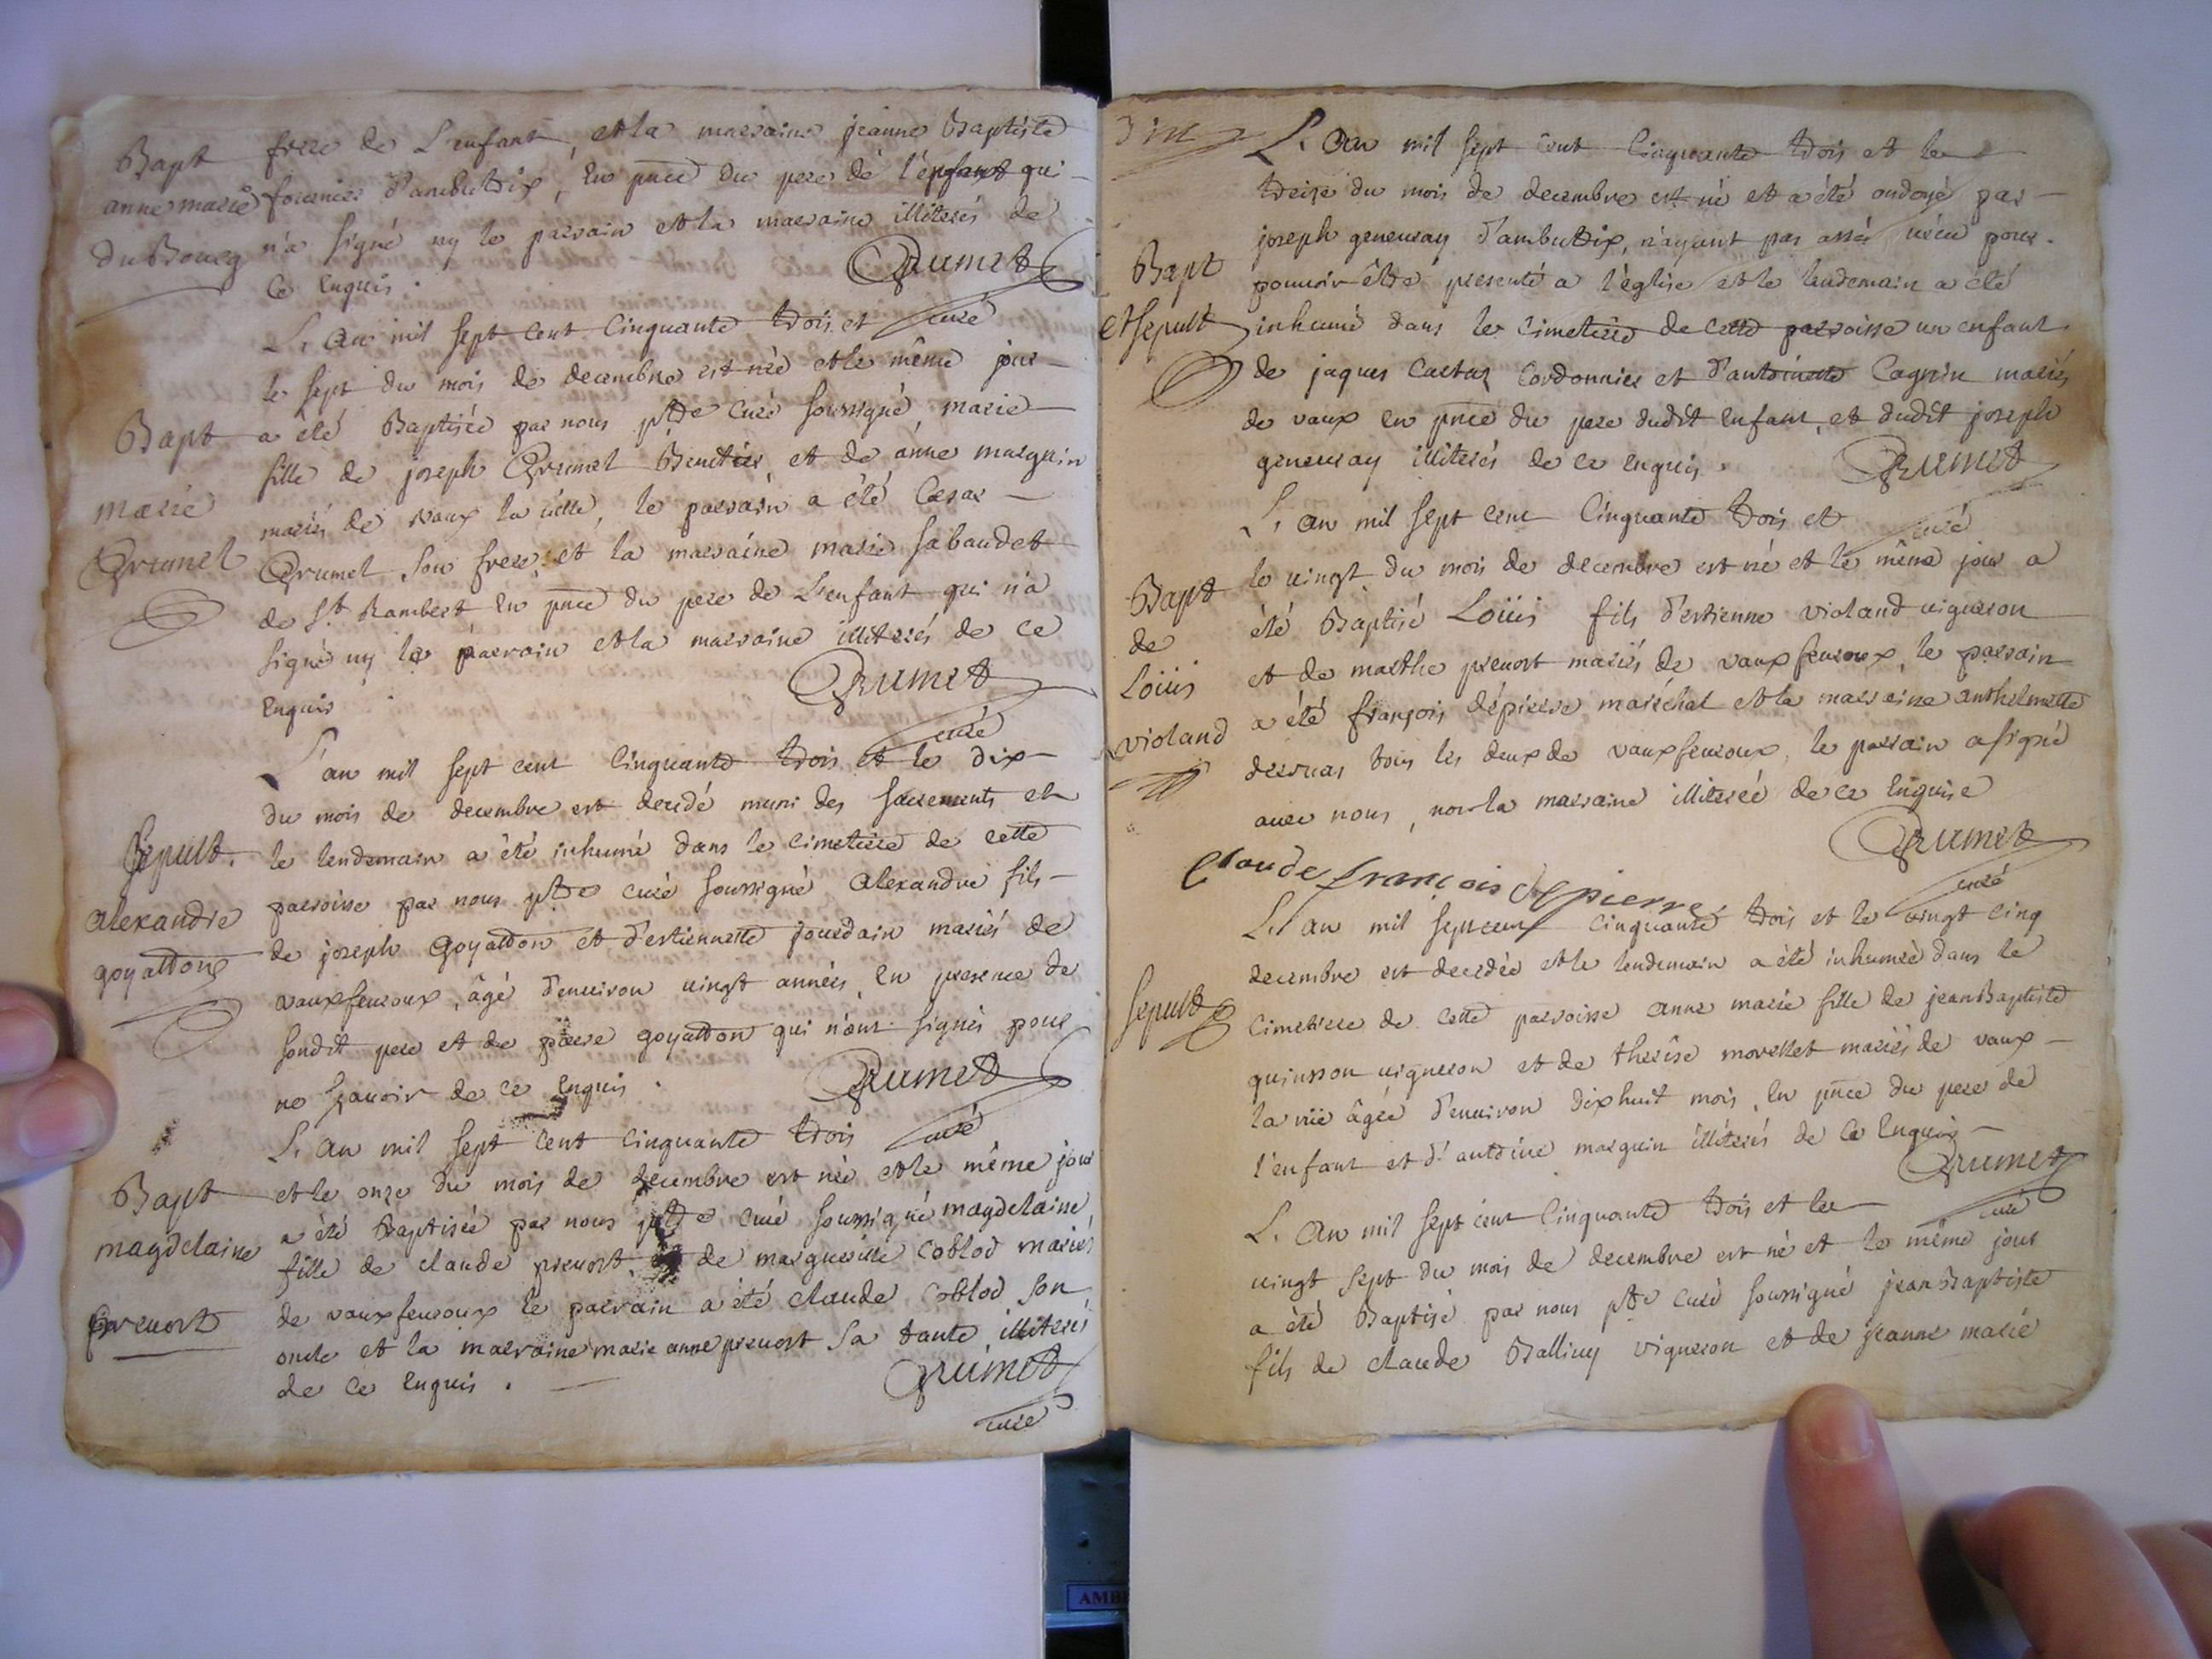 Bapt
anne marie
du Bourg
frere de L'enfant, et la marraine jeanne Baptiste
fornier d'ambutrix, en pnce du pere de l'enfant qui
n'a signé ny le parrain et la marraine illiterés de
ce enquis.
Grumet
curé
L'an mil sept cent cinquante trois et
le sept du mois de decembre est née et le même jour
Bapt
marie
Grumel
a été Baptisée par nous ptre curé soussigné, marie
fille de joseph Grumel Benetier et de anne marguin
mariés de vaux la ville, le parrain a été Cæsar
Grumel son frere, et la marraine marie sabaudet
de St. Rambert en pnce du pere de L'enfant qui n'a
signé ny le parrain et la marraine illiterés de ce
enquis
Grumet
curé
L'an mil sept cent cinquante trois et le dix
du mois de decembre est decedé muni des sacrements et
Sepult.
alexandre
goyatton
le lendemain a été inhumé dans le cimetiere de cette
parroisse par nous ptre curé soussigné alexandre fils
de joseph goyatton et d'estiennette jourdain mariés de
vauxfevroux, âgé d'environ vingt années, en presence de
sondit pere et de pierre goyatton qui n'ont signés pour
ne sçavoir de ce enquis.
Grumet
curé
L'an mil sept cent cinquante trois
Bapt
magdelaine
prevost
et le onze du mois de decembre est née et le même jour
a été Baptisée par nous ptre curé soussigné magdelaine
fille de claude prevost, et de margueritte coblod mariés
de vauxfevroux le parrain a été claude coblod son
oncle et la marraine marie anne prevost sa tante illiterés
de ce enquis.
Grumet
curé
L'an mil sept cent cinquante trois et le
treize du mois de decembre est né et a été ondoyé par
joseph genevray d'ambutrix, n'ayant pas assés vécu pour
Bapt
et sepult
pouvoir être presenté a l'église et le lendemain a été
inhumé dans le cimetiere de cette parroisse un enfant
de jaques cordonnier et d'antoinette Cagnin mariés
de vaux en pnce du pere dudit enfant, et dudit joseph
genevray illiterés de ce enquis.
Grumet
curé
L'an mil sept cent cinquante trois et
Bapt
de
Loüis
violand
le vingt du mois de decembre est né et le même jour a
été Baptisé Loüis fils d'estienne violand vigneron
et de marthe prevost mariés de vauxfevroux, le parrain
a été françois dépierre maréchal et la marraine anthelmette
tous les deux de vauxfevroux, le parrain a signé
avec nous, non la marraine illiterée de ce enquise
Grumet
curé
Claude françois depierre
L'an mil sept cent cinquante trois et le vingt cinq
decembre est decedée et le lendemain a été inhumée dans le
Sepult
cimetiere de cette parroisse anne marie fille de jean Baptiste
quinson vigneron et de therêse morellet mariés de vaux
la vie âgée d'environ dixhuit mois, en pnce du pere de
l'enfant et d'antoine marguin illiterés de ce enquis
Grumet
curé
L'an mil sept cent cinquante trois et le
vingt sept du mois de decembre est né et le même jour
a été Baptisé par nous ptre curé soussigné jean Baptiste
fils de claude Balliuy vigneron et de jeanne marie
AMB